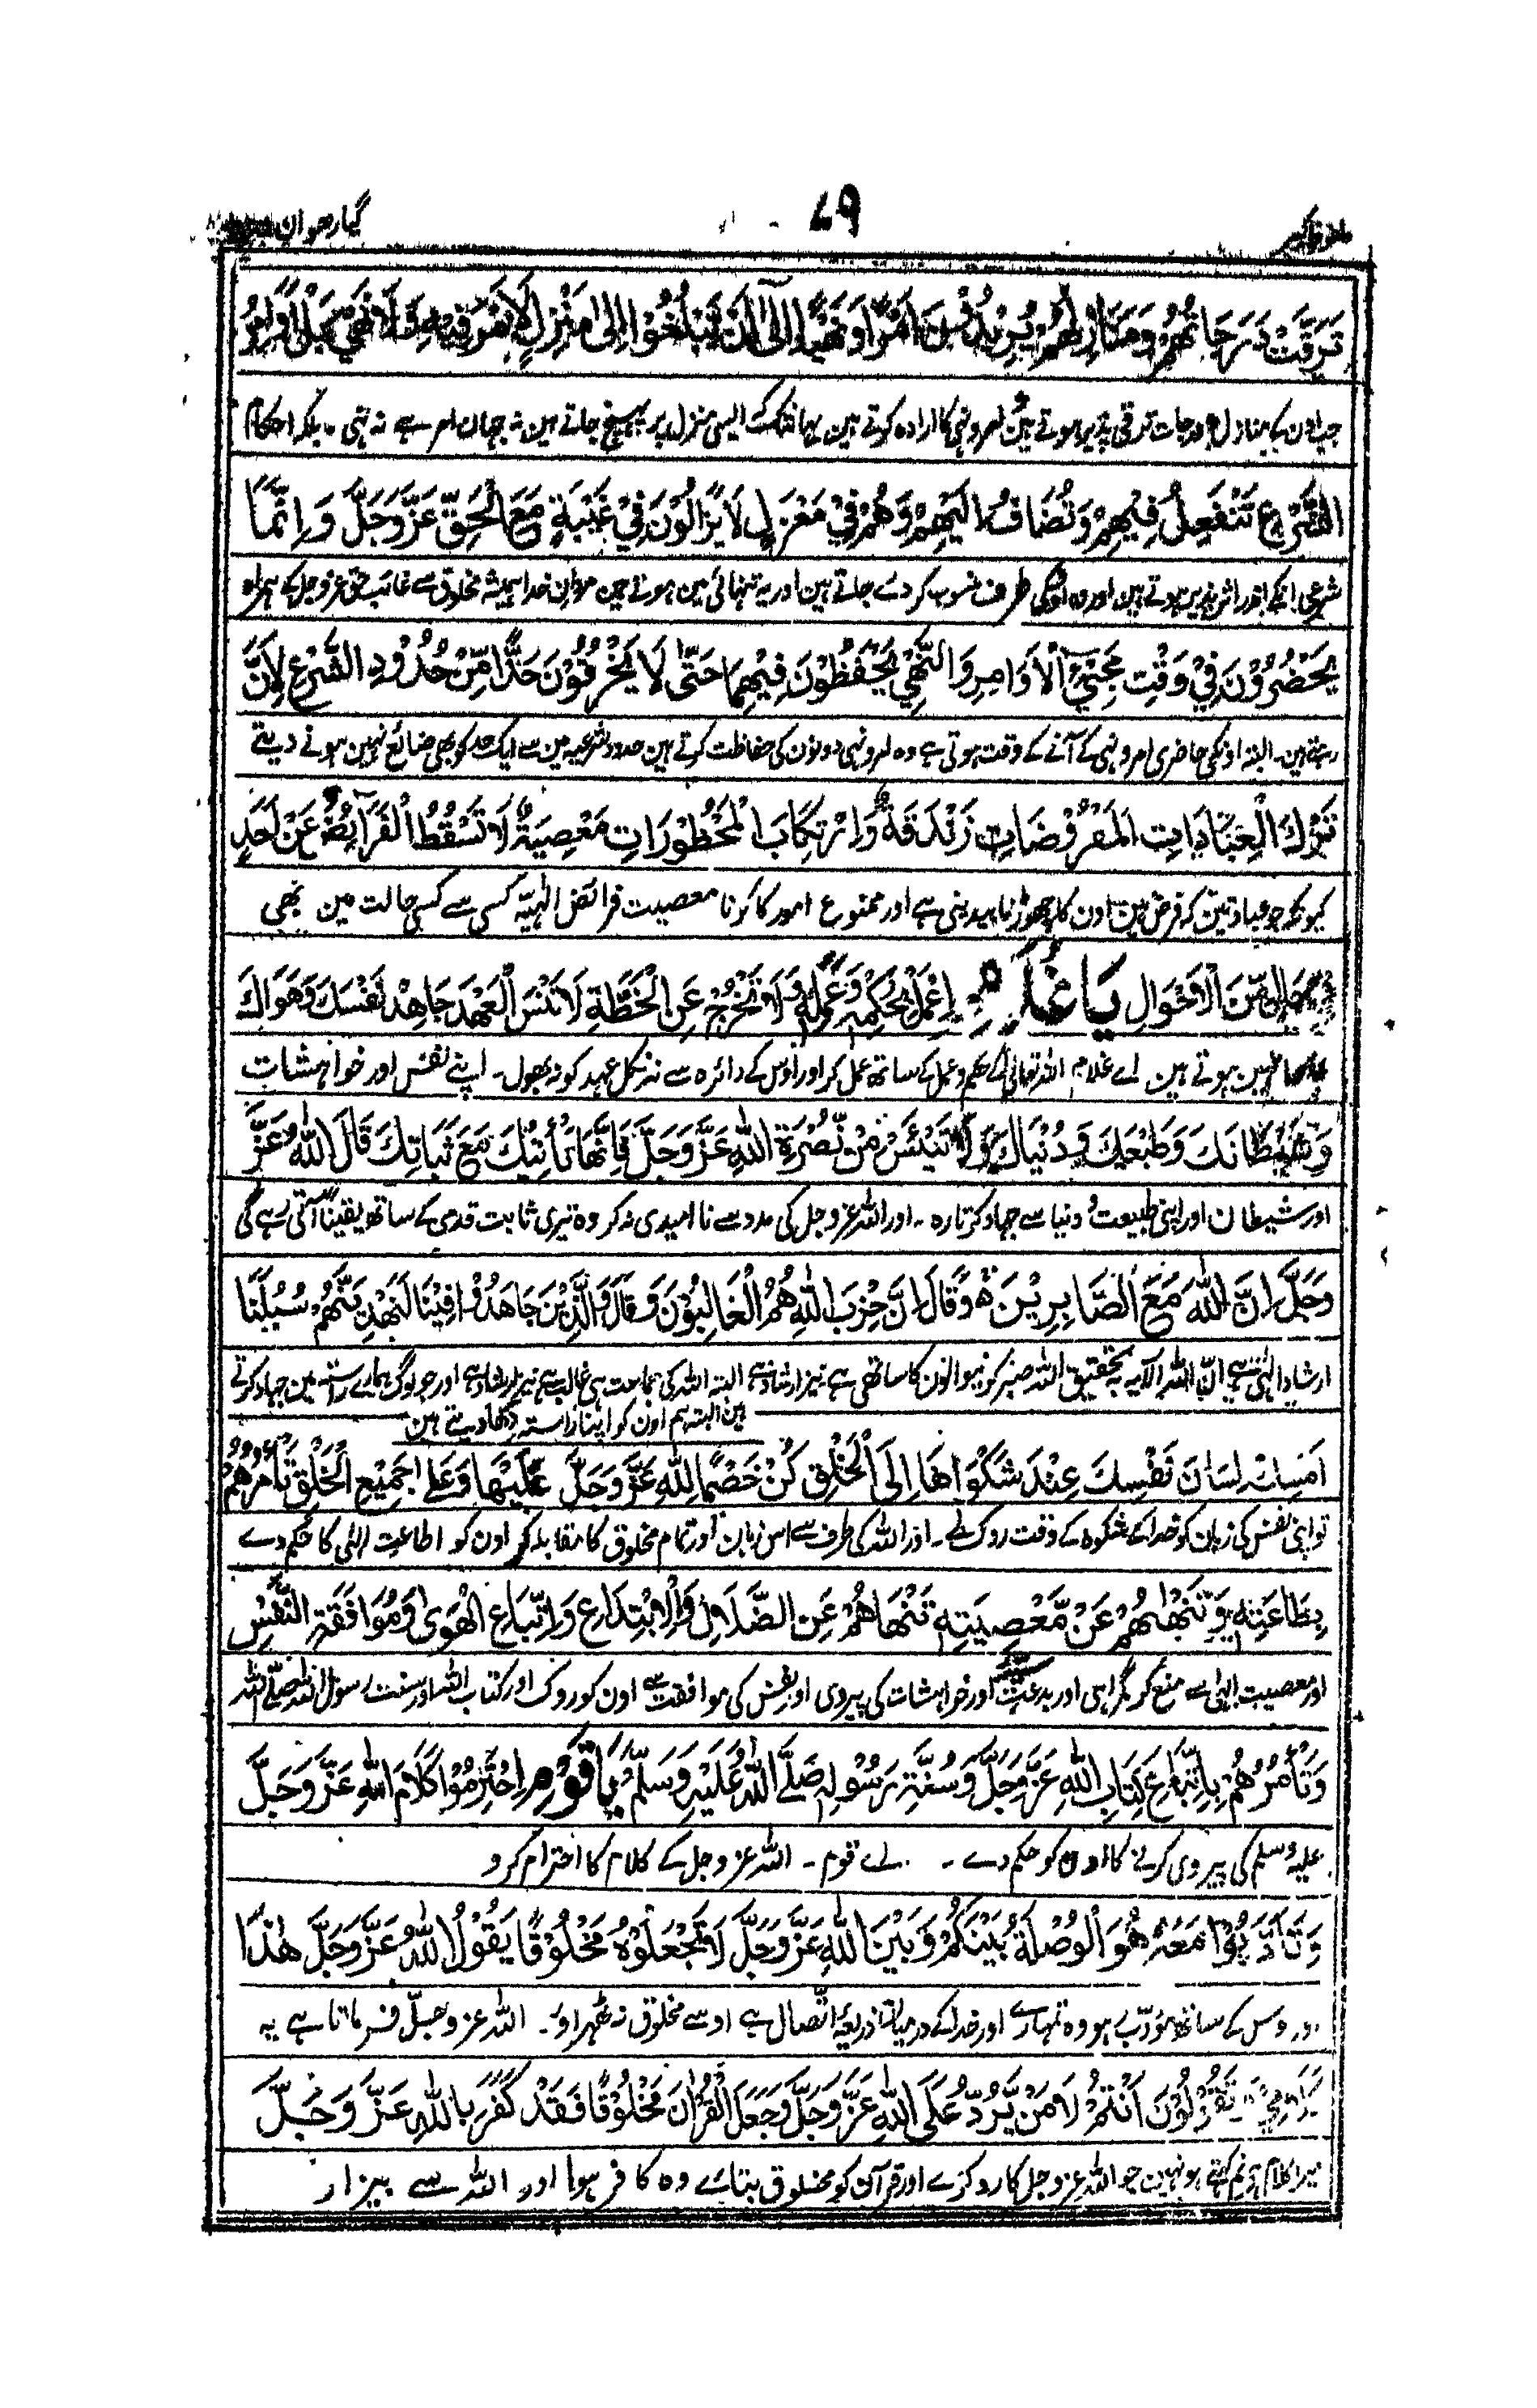 گیارھوان
۷۹
تَرَقَّتْ دَرَجَاتُهُمْ وَمَنَازِلُهُمْ يُرِيْدُوْنَ اَمْرًا وَنَهْيًا اِلٰى اَنْ تَبْلُغُوْا اِلٰى مَنْزِلٍ لَا اَمْرَ فِيْهِ وَلَا نَهْيَ بَلْ اَوَامِرُ
جب اون کے منازل و درجات ترقی پذیر ہوتے ہین امر و نہی کا ارادہ کرتے ہین یہانتک کہ ایسی منزل پر پہنچ جاتے ہین نہ جہان امر ہے نہ نہی ۔ بلکہ احکام
الشَّرْعِ تَنْفَعِلُ فِيْهِمْ وَتُضَافُ اِلَيْهِمْ وَهُمْ فِيْ مَعْزَلٍ لَا يَزَالُوْنَ فِيْ غَيْبَةٍ مَعَ الْحَقِّ عَزَّ وَجَلَّ وَاِنَّمَا
شرعی انکے اندر اثر پذیر ہوتے ہین اور وہ اونکی طرف منسوب کر دئے جاتے ہین اور یہ تنہائی مین ہوتے ہین مردان خدا ہمیشہ مخلوق سے غائب حق عز وجل کے ہمراہ
يَحْضُرُوْنَ فِيْ وَقْتِ مَجِيْءِ الْاَوَامِرِ وَالنَّهْيِ يَحْفَظُوْنَ فِيْهِمَا حَتّٰى لَا يَخْرُقُوْنَ حَدًّا مِّنْ حُدُوْدِ الشَّرْعِ لِاَنَّ
رہتے ہین ۔ البتہ اونکی حاضری امر و نہی کے آنے کے وقت ہوتی ہے وہ امر و نہی دونون کی حفاظت کرتے ہین حدود شرعیہ مین سے ایک حد کو بھی ضائع نہین ہونے دیتے
تَرْكَ الْعِبَادَاتِ الْمَفْرُوْضَاتِ زَنْدَقَةٌ وَارْتِكَابَ الْمَحْظُوْرَاتِ مَعْصِيَةٌ لَا تَسْقُطُ الْفَرَآئِضُ عَنْ اَحَدٍ
کیونکہ جو عبادتین کہ فرض ہین اون کا چھوڑنا بیدینی ہے اور ممنوع امور کا کرنا معصیت فرائض الٰہیہ کسی سے کسی حالت مین بھی
مِّنَ الْاَحْوَالِ يَا غُلَامُ اِعْمَلْ بِحُكْمِهٖ وَعَمَلِهٖ وَلَا تَخْرُجْ عَنِ الْخِطَّةِ لَا تَنْسَ الْعَهْدَ جَاهِدْ نَفْسَكَ وَهَوَاكَ
نہین ہوتے ہین اے غلام اللہ تعالیٰ کے حکم و عمل کے ساتھ عمل کر اور اوس کے دائرہ سے نہ نکل عہد کو نہ بھول ۔ اپنے نفس اور خواہشات
وَشَيْطَانَكَ وَطَبْعَكَ وَدُنْيَاكَ وَلَا تَيْئَسْ مِنْ نُّصْرَةِ اللهِ عَزَّ وَجَلَّ فَاِنَّهَا تَأْتِيْكَ مَعَ ثَبَاتِكَ قَالَ اللهُ عَزَّ
اور شیطان اور اپنی طبیعت و دنیا سے جہاد کرتا رہ ۔ اور اللہ عز وجل کی مدد سے نا امیدی نہ کر وہ تیری ثابت قدمی کے ساتھ یقیناً آتی رہے گی
وَجَلَّ اِنَّ اللهَ مَعَ الصَّابِرِيْنَ ہ وَقَالَ اِنَّ حِزْبَ اللهِ هُمُ الْغَالِبُوْنَ وَقَالَ وَالَّذِيْنَ جَاهَدُوْا فِيْنَا لَنَهْدِيَنَّهُمْ سُبُلَنَا
ارشاد الٰہی ہے اِنَّ اللہَ الآیہ بتحقیق اللہ صبر کرنیوالون کا ساتھی ہے نیز ارشاد ہے البتہ اللہ کی جماعت ہی غالب ہے نیز ارشاد ہے اور جو لوگ ہمارے راستہ مین جہاد کرتے
ہین البتہ ہم اون کو اپنا راستہ دکھا دیتے ہین
اَمْسِكْ لِسَانَ نَفْسِكَ عِنْدَ شَكْوَاهَا اِلَى الْخَلْقِ كُنْ خَصْمًا لِلّٰهِ عَزَّ وَجَلَّ عَلَيْهَا وَعَلٰى جَمِيْعِ الْخَلْقِ تَأْمُرُهُمْ
تو اپنی نفس کی زبان کو خدا کے شکوہ کے وقت روک لے ۔ اور اللہ کی طرف سے اس زبان اور تمام مخلوق کا مقابلہ کر اون کو اطاعت الٰہی کا حکم دے
بِطَاعَتِهٖ وَتَنْهٰهُمْ عَنْ مَّعْصِيَتِهٖ تَنْهَاهُمْ عَنِ الضَّلَالِ وَالْاِبْتِدَاعِ وَاتِّبَاعِ الْهَوٰى وَمُوَافَقَةِ النَّفْسِ
اور معصیت الٰہی سے منع کر گمراہی اور بدعت اور خواہشات کی پیروی اور نفس کی موافقت سے اون کو روک اور کتاب اللہ اور سنت رسول اللہ صلی اللہ
وَتَأْمُرُهُمْ بِاِتِّبَاعِ كِتَابِ اللهِ عَزَّ وَجَلَّ وَسُنَّةِ رَسُوْلِهٖ صَلَّى اللهُ عَلَيْهِ وَسَلَّمَ يَا قَوْمِ اِحْتَرِمُوْا كَلَامَ اللهِ عَزَّ وَجَلَّ
علیہ وسلم کی پیروی کرنے کا اون کو حکم دے ۔ اے قوم ۔ اللہ عز وجل کے کلام کا احترام کرو
وَتَأَدَّبُوْا مَعَهٗ هُوَ الْوُصْلَةُ بَيْنَكُمْ وَبَيْنَ اللهِ عَزَّ وَجَلَّ لَا تَجْعَلُوْهُ مَخْلُوْقًا يَقُوْلُ اللهُ عَزَّ وَجَلَّ هٰذَا
اور اوس کے ساتھ مؤدب ہو وہ تمہارے اور خدا کے درمیان ذریعہ اتصال ہے اوسے مخلوق نہ ٹھہراؤ ۔ اللہ عز وجل فرماتا ہے یہ
كَلَامِيْ تَقُوْلُوْنَ اَنْتُمْ لَا مَنْ يَّرُدُّ عَلَى اللهِ عَزَّ وَجَلَّ وَجَعَلَ الْقُرْاٰنَ مَخْلُوْقًا فَقَدْ كَفَرَ بِاللهِ عَزَّ وَجَلَّ
میرا کلام تم کہتے ہو نہین جو اللہ عز وجل کا رد کرے اور قرآن کو مخلوق بتائے وہ کافر ہوا اور اللہ سے بیزار